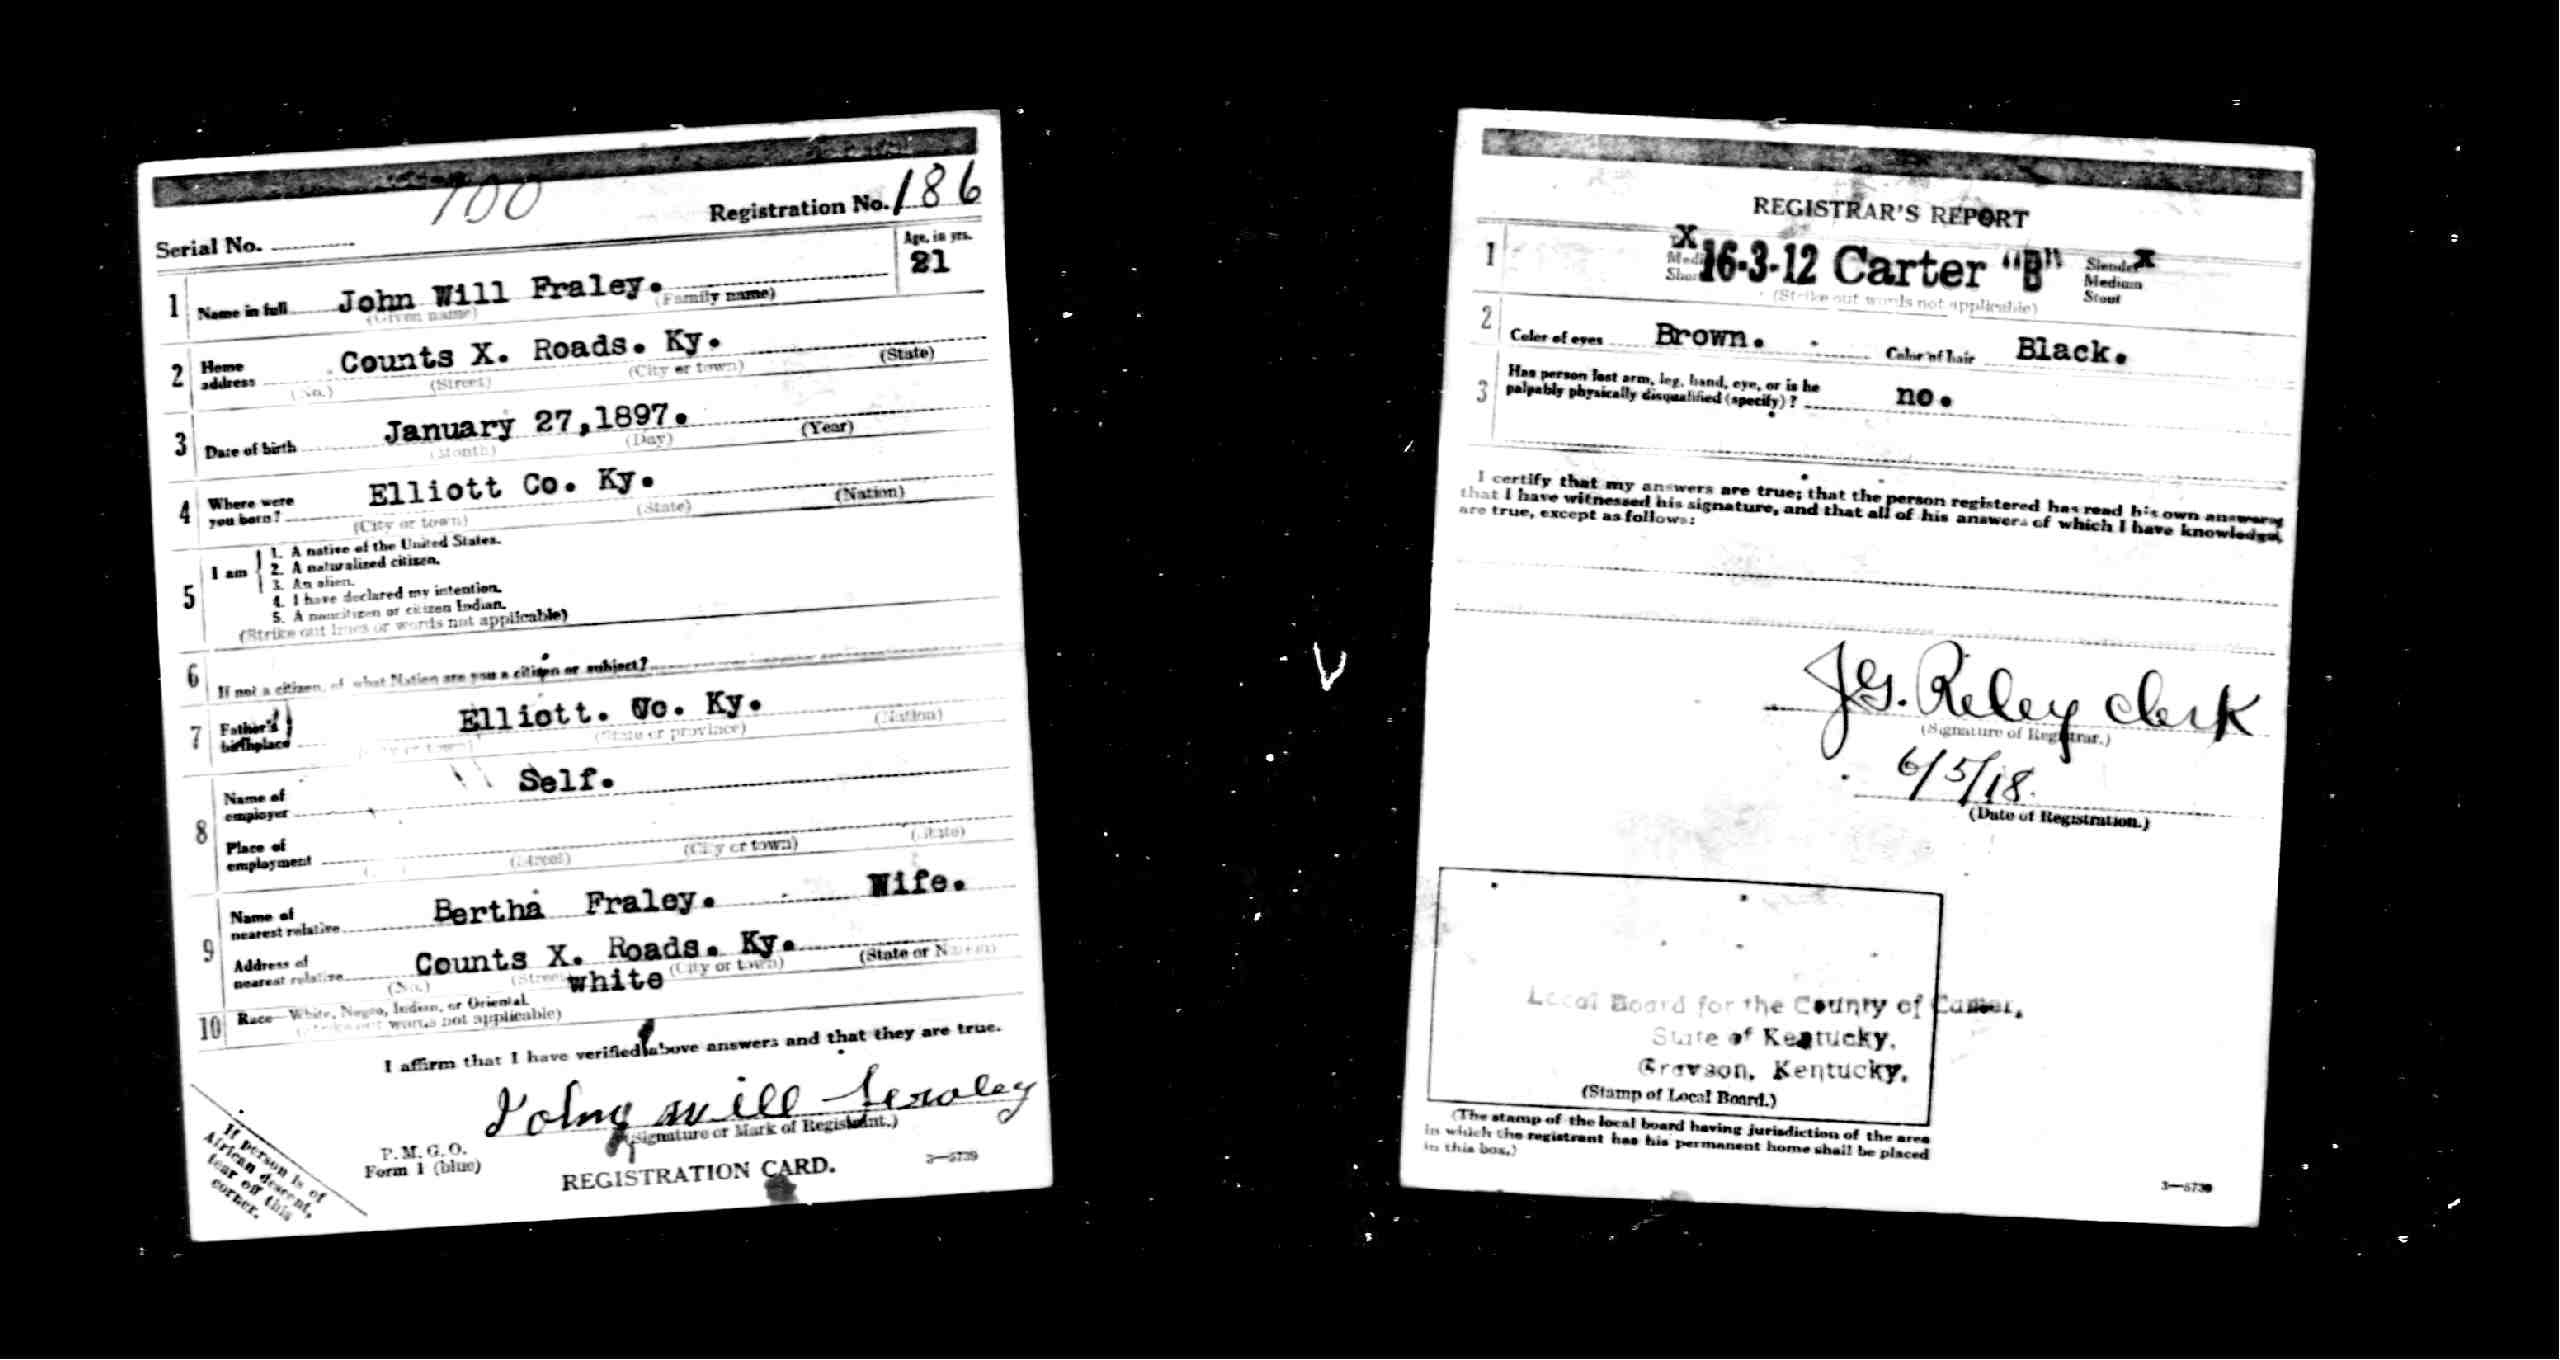 700
Serial No.
Registration No. 186
1 Name in full John Will Fraley.
(Given name) (Family name)
Age, in yrs.
21
2 Home address Counts X. Roads. Ky.
(No.) (Street) (City or town) (State)
3 Date of birth January 27,1897.
(Month) (Day) (Year)
4 Where were you born? Elliott Co. Ky.
(City or town) (State) (Nation)
5 I am
1. A native of the United States.
2. A naturalized citizen.
3. An alien.
4. I have declared my intention.
5. A noncitizen or citizen Indian.
(Strike out lines or words not applicable)
6 If not a citizen, of what Nation are you a citizen or subject?
7 Father's birthplace Elliott. Co. Ky.
(City or town) (State or province) (Nation)
8 Name of employer Self.
Place of employment
(Street) (City or town) (State)
9 Name of nearest relative Bertha Fraley. Wife.
Address of nearest relative Counts X. Roads. Ky.
(No.) (Street) (City or town) (State or Nation)
10 Race—White, Negro, Indian, or Oriental. white
(Strike out words not applicable)
I affirm that I have verified above answers and that they are true.
John Will Fraley
(Signature or Mark of Registrant.)
P. M. G. O.
Form 1 (blue)
REGISTRATION CARD.
3—5739
If person is of
African descent,
tear off this
corner.
REGISTRAR'S REPORT
1 X 16-3-12 Carter "B" Slender X
Medium
Stout
(Strike out words not applicable)
2 Color of eyes Brown. Color of hair Black.
3 Has person lost arm, leg, hand, eye, or is he
palpably physically disqualified (specify)? no.
I certify that my answers are true; that the person registered has read his own answers;
that I have witnessed his signature, and that all of his answers of which I have knowledge,
are true, except as follows:
J.G. Riley clerk
(Signature of Registrar.)
6/5/18.
(Date of Registration.)
Local Board for the County of Carter,
State of Kentucky,
Grayson, Kentucky.
(Stamp of Local Board.)
(The stamp of the local board having jurisdiction of the area
in which the registrant has his permanent home shall be placed
in this box.)
3—5739